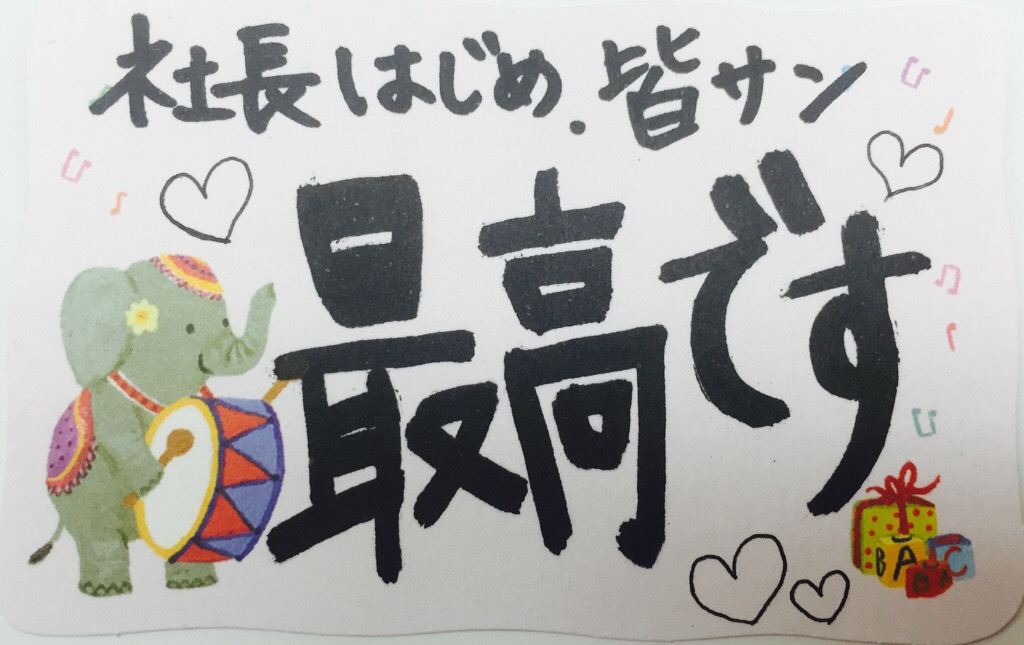 社長はじめ.皆サン
最高です
BABAC